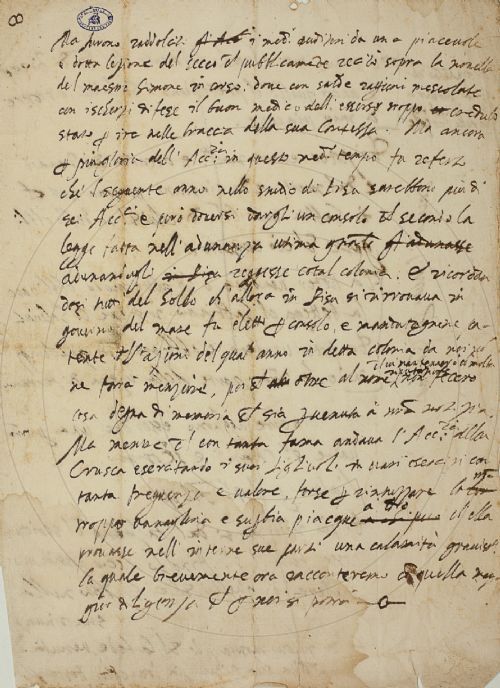 8
Ma furono raddolciti i med.i uditori da una piacevole
e dotta lezione del Secco che pubblicamente recitò sopra la novella
del maestro Simone in corso: dove con salde ragioni mescolate
con ischerzi difese il buon medico dell'essersi troppo credulo
stato per ire nelle braccia della sua Contessa. Ma ancora
per più gloria dell'Acc.ia in questo med.o tempo fu referto
che 'l seguente anno nello studio di Pisa sarebbono più di
sei Acc.i e però doversi dargli un consolo che secondo la
legge fatta nell'adunanza ultima
adunandogli reggesse cotal colonia. E ricordan
dosi tutti del Sollo che allora in Pisa si ritrovava in
governo del mare fu eletto per consolo, e mandatogliene
le azioni del qual anno in detta colonia da noi
ne farà menzione, poi che oltre al non fecero
cosa degna di memoria che sia pervenuta a n.ra notizia
Ma mentre che con tanta fama andava l'Acc.ia della
Crusca esercitando i suoi figliuoli in vari esercizi con
tanta frequenza e valore, forse per rintuzzare la
troppo vanagloria e superbia piacque a Dio ch'ella
provasse nell'interne sue parti una calamità gravissi
la quale brevemente ora racconteremo con quella mag
gior diligenza che per noi si potrà